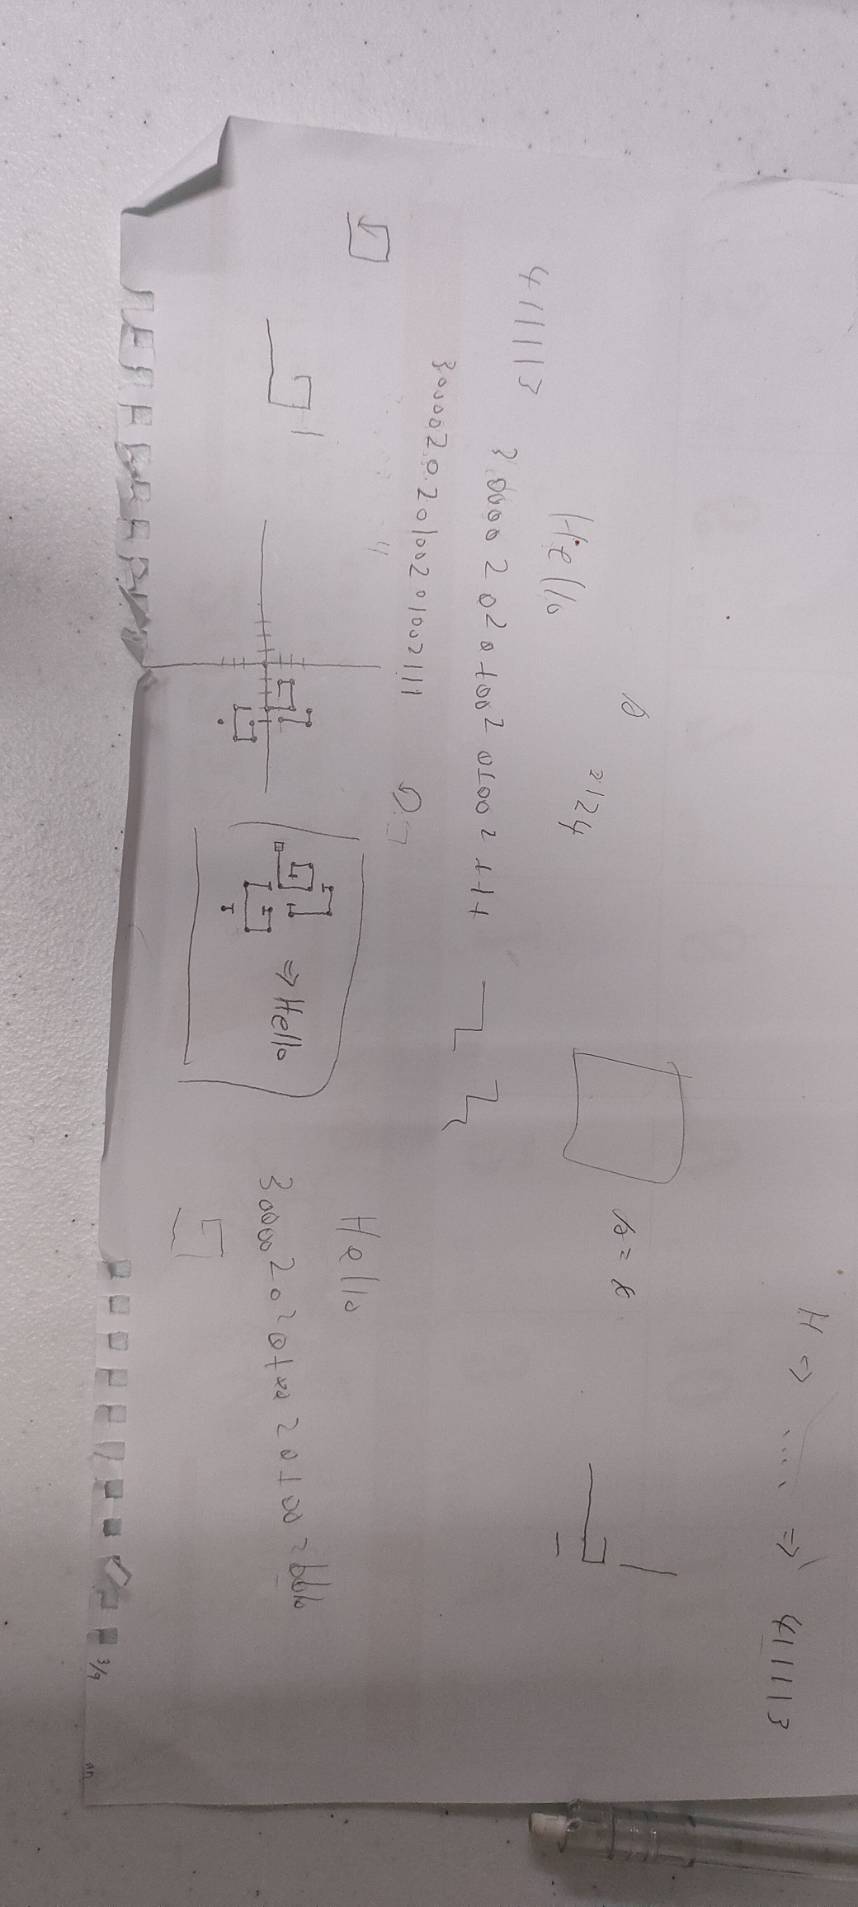 H => .... => 411113
s = x
s
2124
Hello
411113
3 0000 2 0 2 0 1 00 2 0100 2 111
300002020100201002111
4
=> Hello
Hello
3 0000 2 0 2 0 1 00 2 0 1 00 2
3/9